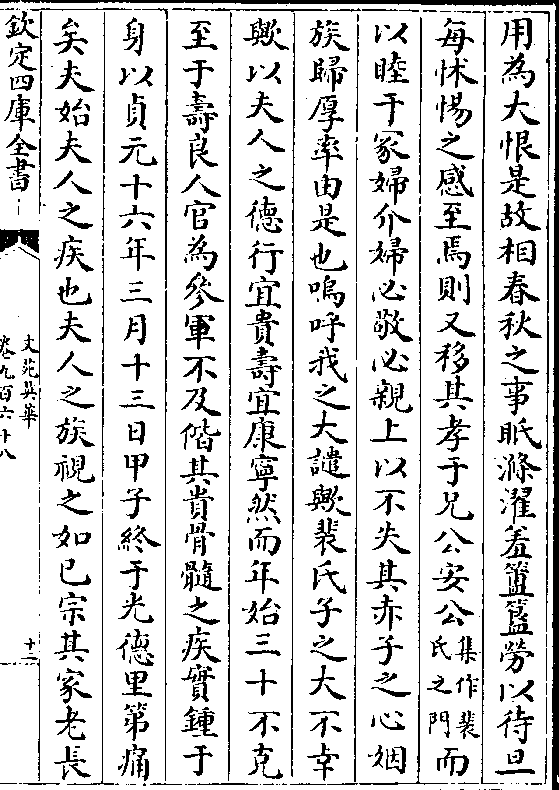 用為大恨是故相春秋之事眂滌濯羞簠簋勞以待旦
每怵惕之感至焉則又移其孝于兄公安公集作裴氏之門而
以睦于冢婦介婦必敬必親上以不失其赤子之心姻
族歸厚率由是也嗚呼我之大譴歟裴氏子之大不幸
歟以夫人之德行宜貴壽宜康寧然而年始三十不克
至于壽良人官為參軍不及偕其貴骨髓之疾實鍾于
身以貞元十六年三月十三日甲子終于光德里第痛
矣夫始夫人之疾也夫人之族視之如已宗其家老長
欽定四庫全書
文苑英華
卷九百六十八
十二